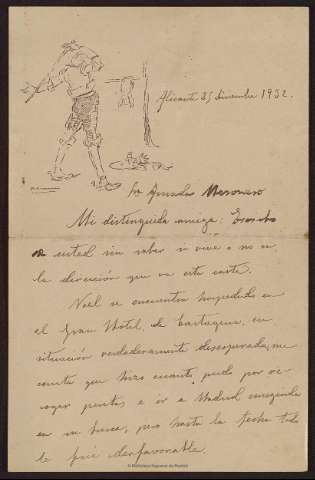 Alicante 25 diciembre 1932.
Sra Amada
Mi distinguida amiga: Escribo
a usted sin saber si vive o no en
la dirección que va esta carta.
Noel se encuentra hospedado en
el Gran Hotel, de Cartagena, en
situación verdaderamente desesperada, me
consta que hizo cuanto pudo por re
coger pesetas e ir a Madrid
en su busca, pero hasta la fecha todo
le fué desfavorable.
© Biblioteca Regional de Madrid